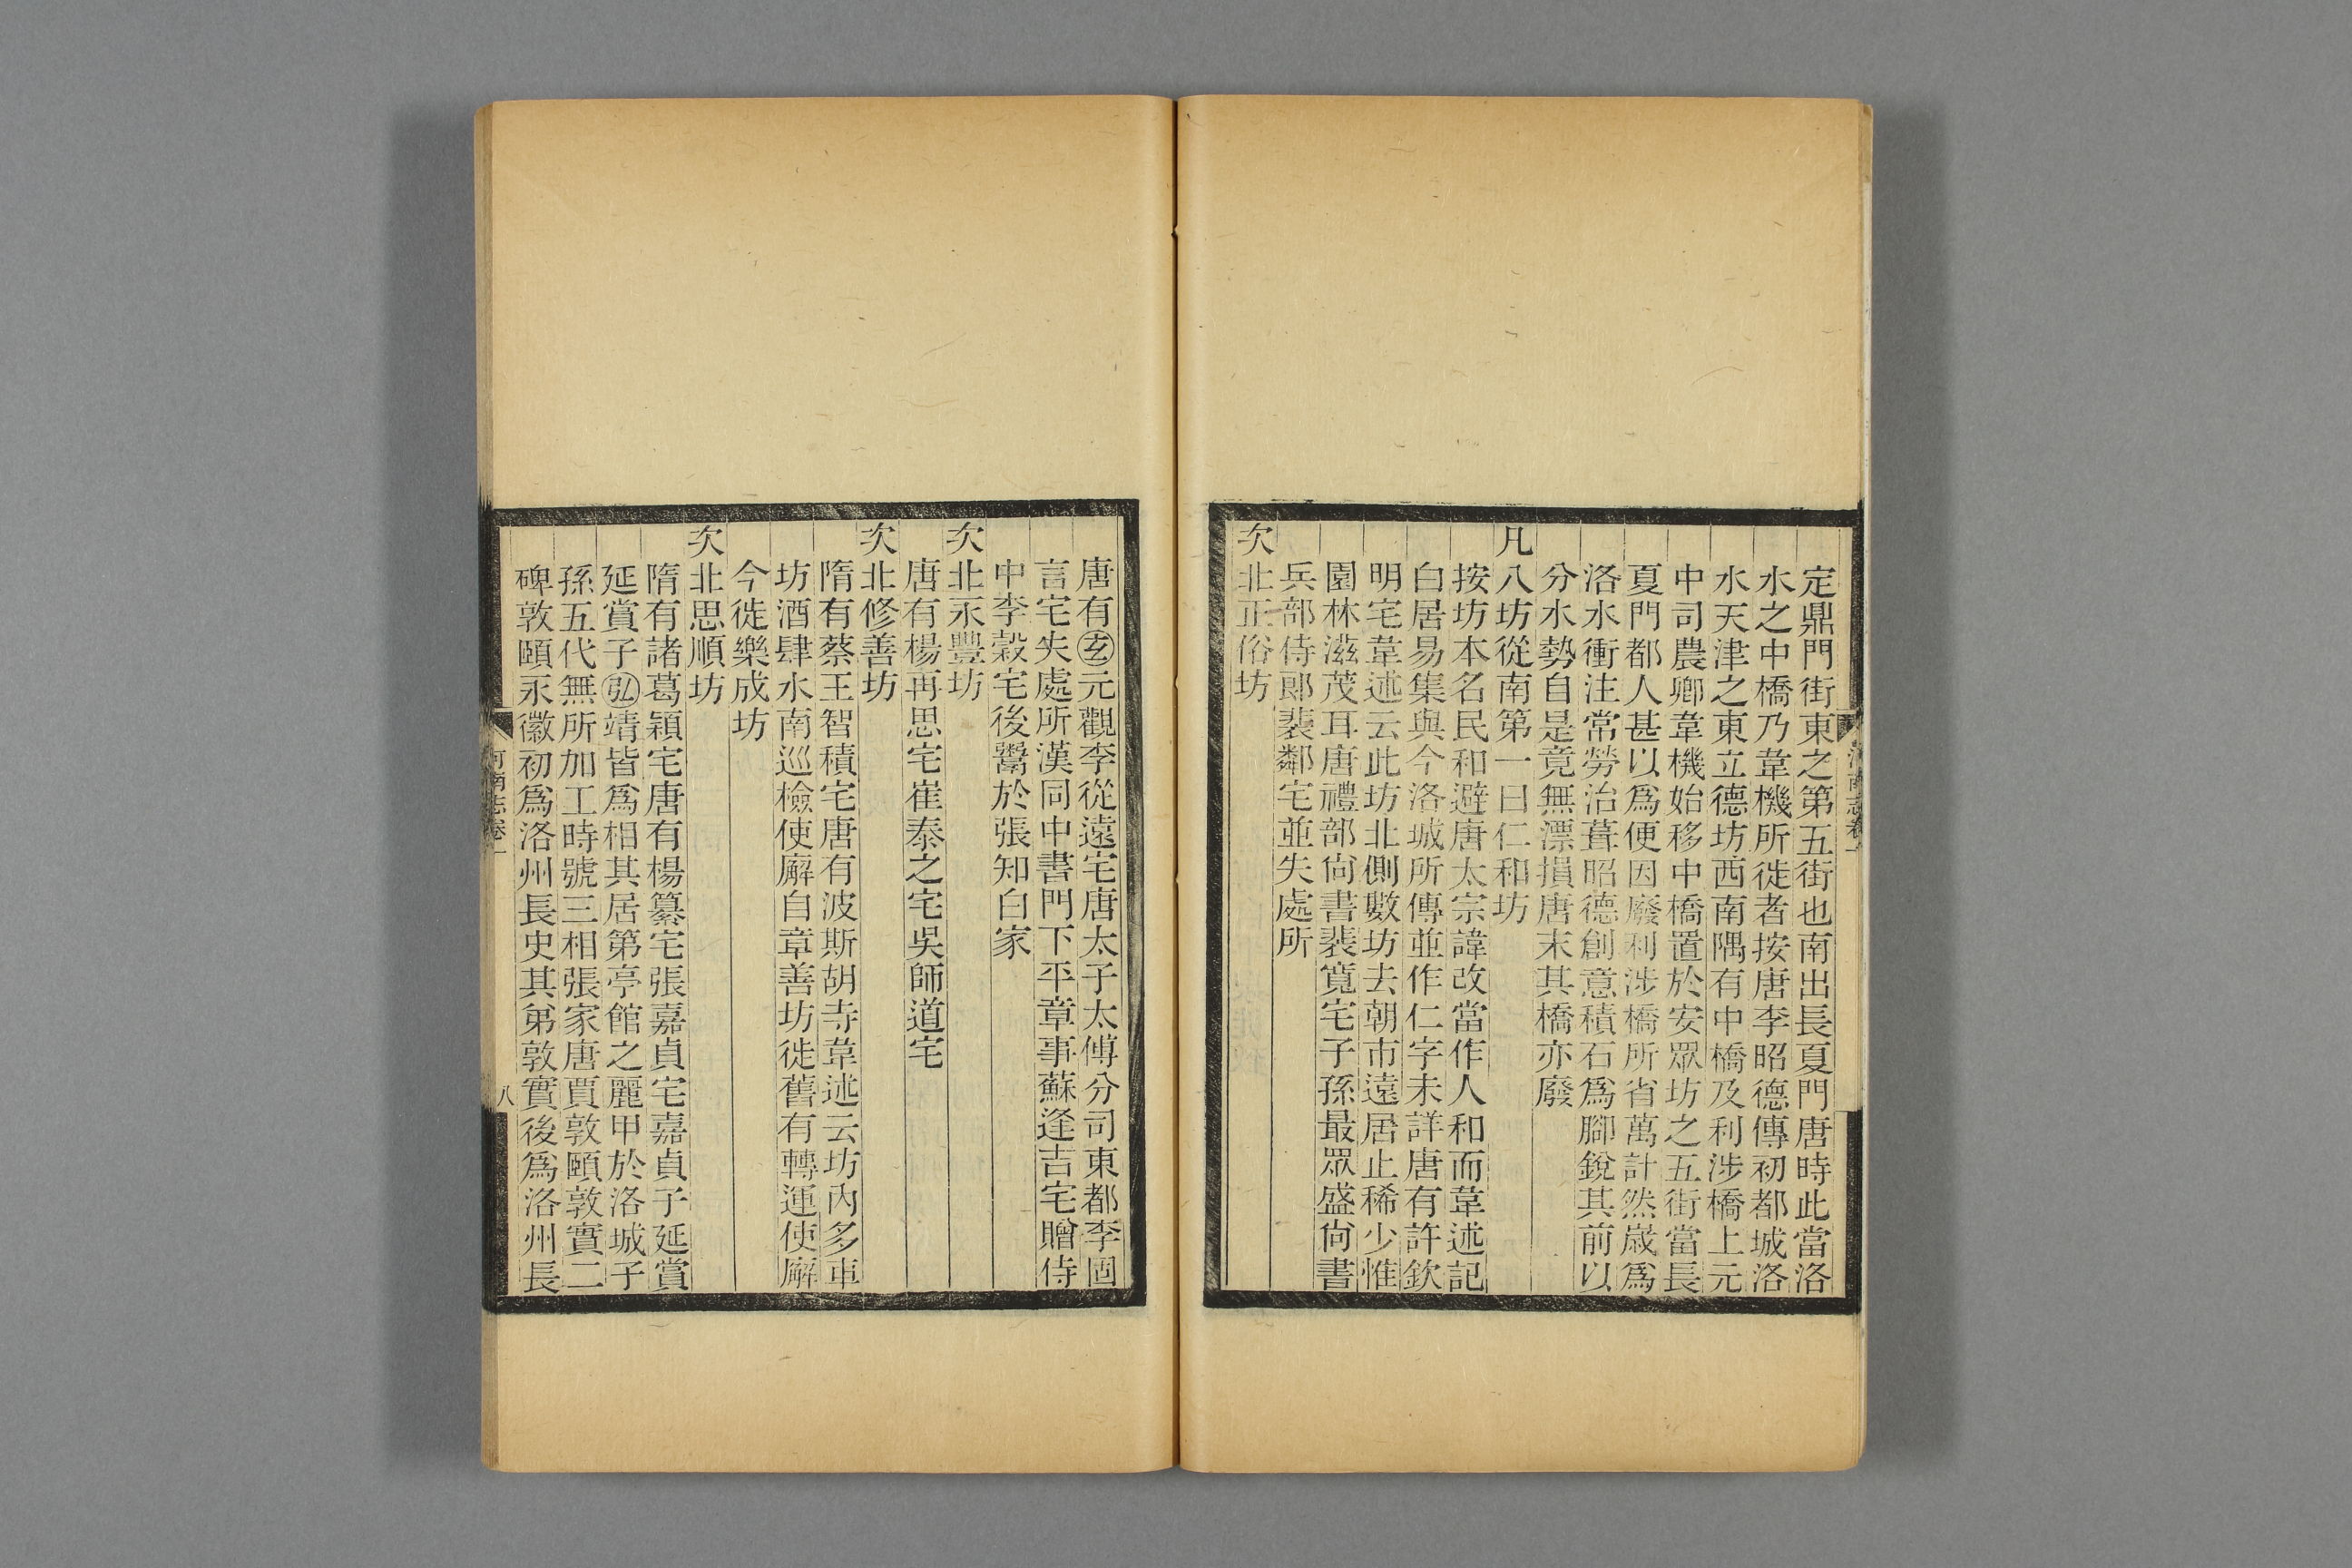 定鼎門街東之第五街也南出長夏門唐時此當洛
水之中橋乃韋機所徙者按唐李昭德傳初都城洛
水天津之東立德坊西南隅有中橋及利涉橋上元
中司農卿韋機始移中橋置於安眾坊之五街當長
夏門都人甚以爲便因廢利涉橋所省萬計然嵗爲
洛水衝注常勞治葺昭德創意積石爲腳銳其前以
分水勢自是竟無漂損唐末其橋亦廢
凡八坊從南第一曰仁和坊
按坊本名民和避唐太宗諱改當作人和而韋述記
白居易集與今洛城所傳並作仁字未詳唐有許欽
明宅韋述云此坊北側數坊去朝市遠居止稀少惟
園林滋茂耳唐禮部尙書裴寬宅子孫最眾盛尙書
兵部侍郞裴鄰宅並失處所
次北正俗坊
唐有㊣玄元觀李從遠宅唐太子太傅分司東都李固
言宅失處所漢同中書門下平章事蘇逢吉宅贈侍
中李榖宅後鬻於張知白家
次北永豐坊
唐有楊再思宅崔泰之宅吳師道宅
次北修善坊
隋有蔡王智積宅唐有波斯胡寺韋述云坊內多車
坊酒肆水南巡檢使廨自章善坊徙舊有轉運使廨
今徙樂成坊
次北思順坊
隋有諸葛穎宅唐有楊纂宅張嘉貞宅嘉貞子延賞
延賞子弘靖皆爲相其居第亭館之麗甲於洛城子
孫五代無所加工時號三相張家唐賈敦頤敦實二
碑敦頤永徽初爲洛州長史其弟敦實後爲洛州長
河南志卷一
八
河南志卷一